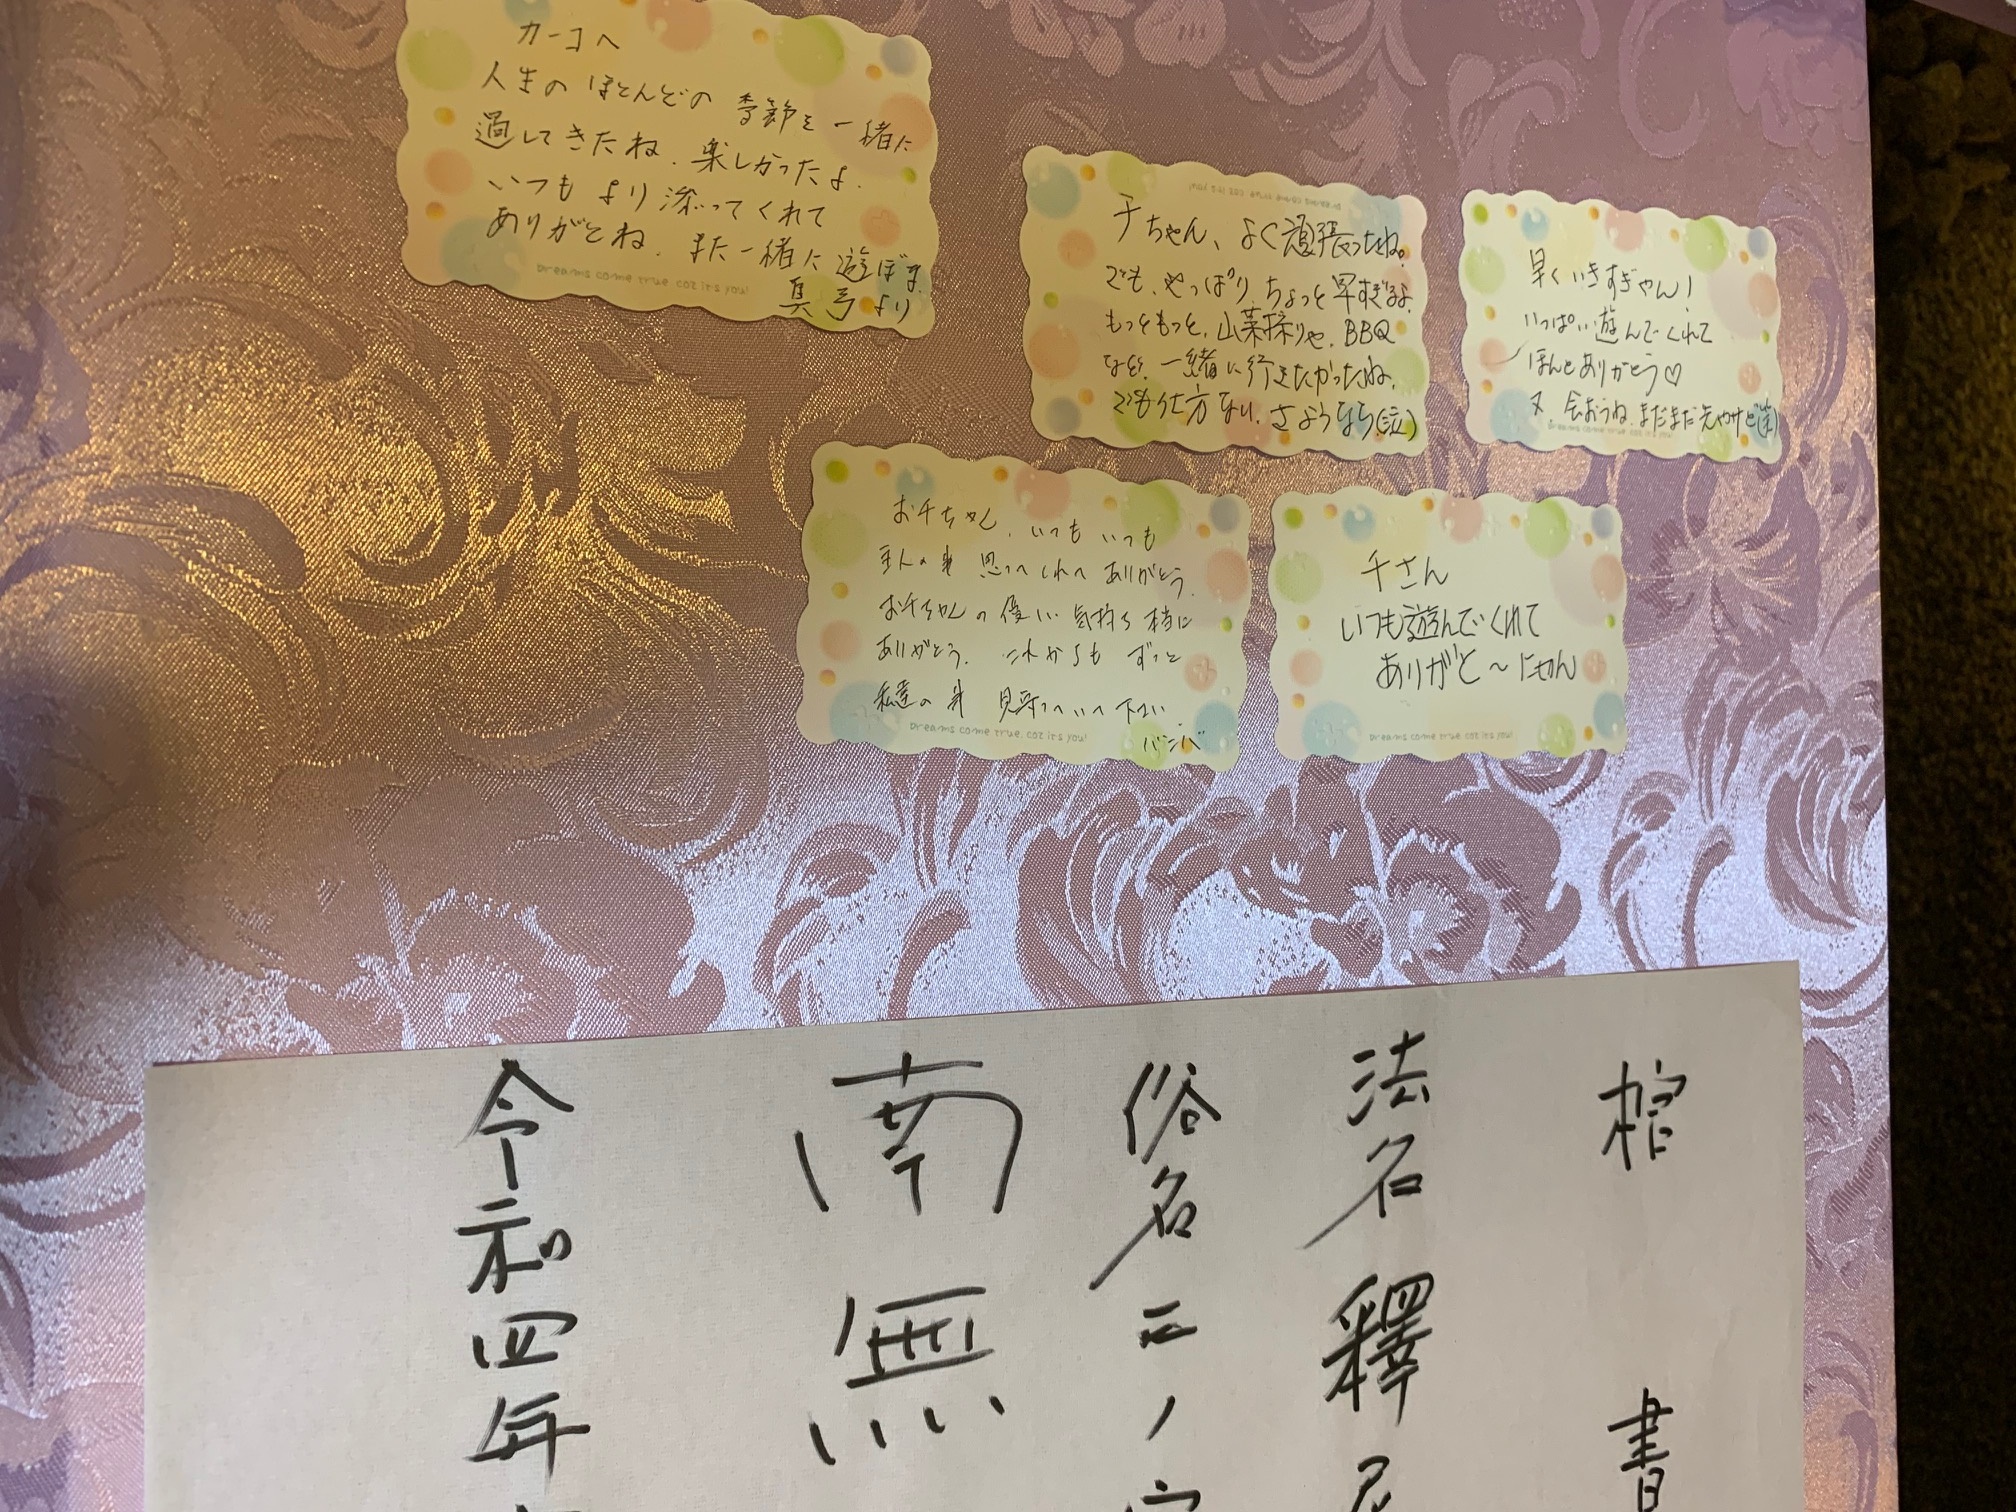 カーコへ
人生の ほとんどの 季節を 一緒に
過してきたね、楽しかったよ.
いつも より添ってくれて
ありがとね. また一緒に遊ぼま.
真弓より
Dreams come true coz it's you!
千ちゃん、よく頑張ったね。
でも、やっぱり、ちょっと早すぎるよ.
もっともっと、山菜採りや、BBQ
など、一緒に行きたかったね.
でも仕方ない、さようなら(泣)
Dreams come true coz it's you!
早くいきすぎやん!
いっぱい遊んでくれて
ほんとありがとう♡
又、会おうね.まだまだ先やけど(笑)
Dreams come true coz it's you!
お千ちゃん、いつも いつも
主人の事 思ってくれて ありがとう.
お千ちゃんの優しい気持ち 本当に
ありがとう. これからも ずっと
私達の事 見守っていて下さい.
バンバ
Dreams come true, coz it's you!
千さん
いつも遊んでくれて
ありがと〜にゃん
Dreams come true, coz it's you!
棺 書
法名釋尼
俗名二ノ宮
南無
令和四年